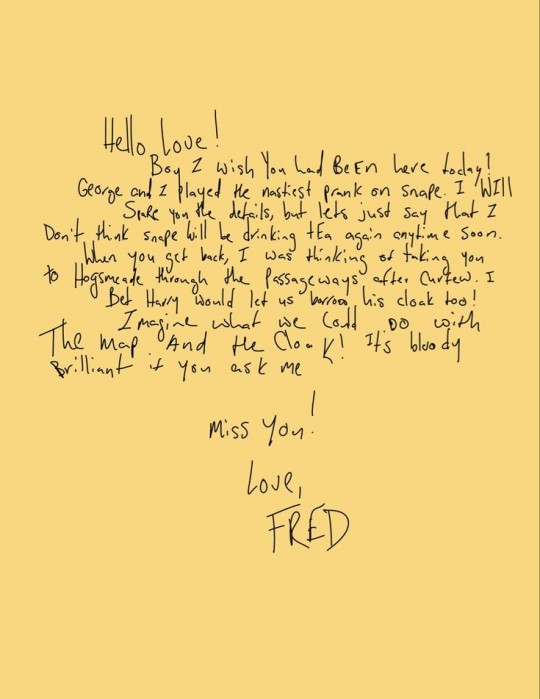 Hello Love!
Boy I wish You had BEEn here today!
George and I played the nastiest prank on snape. I WIll
Spare you the details, but lets just say that I
Don't think snape will be drinking tEa again anytime soon.
When you get back, I was thinking of taking you
to Hogsmeade through the Passageways after curfew. I
Bet Harry would let us borrow his cloak too!
Imagine what we Could DO with
The map And the CloaK! It's bloody
Brilliant if you ask me
Miss You!
Love,
FRED